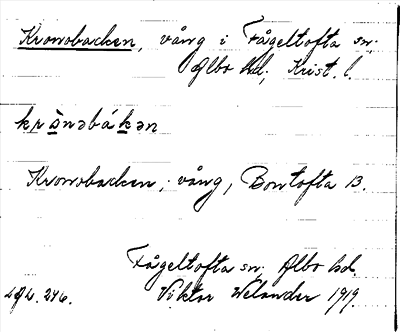 Kronobacken, vång i Fågeltofta sn;
Albo hd; Krist. l.
krònəbákən
Kronobacken, vång, Bontofta 13.
Fågeltofta sn; Albo hd.
Viktor Welander 1919.